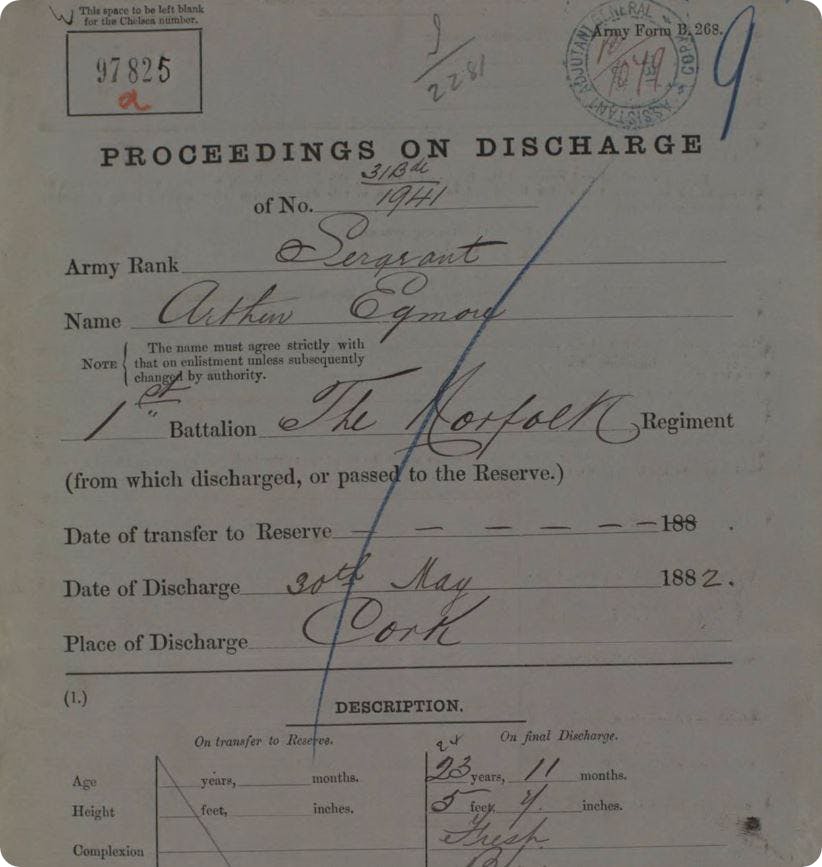 This space to be left blank
for the Chelsea number.
97825
a
9
2281
Army Form B. 268.
ASSISTANT ADJUTANT GENERAL CORK
1049
9
PROCEEDINGS ON DISCHARGE
31 Bde
of No. 1941
Army Rank Sergeant
Name Arthur Egmore
NOTE { The name must agree strictly with
that on enlistment unless subsequently
changed by authority.
1st Battalion The Norfolk Regiment
(from which discharged, or passed to the Reserve.)
Date of transfer to Reserve — — — — — — 188 .
Date of Discharge 30th May 1882.
Place of Discharge Cork
(1.)
DESCRIPTION.
On transfer to Reserve. On final Discharge.
24
Age years, months. 23 years, 11 months.
Height feet, inches. 5 feet, inches.
Complexion Fresh